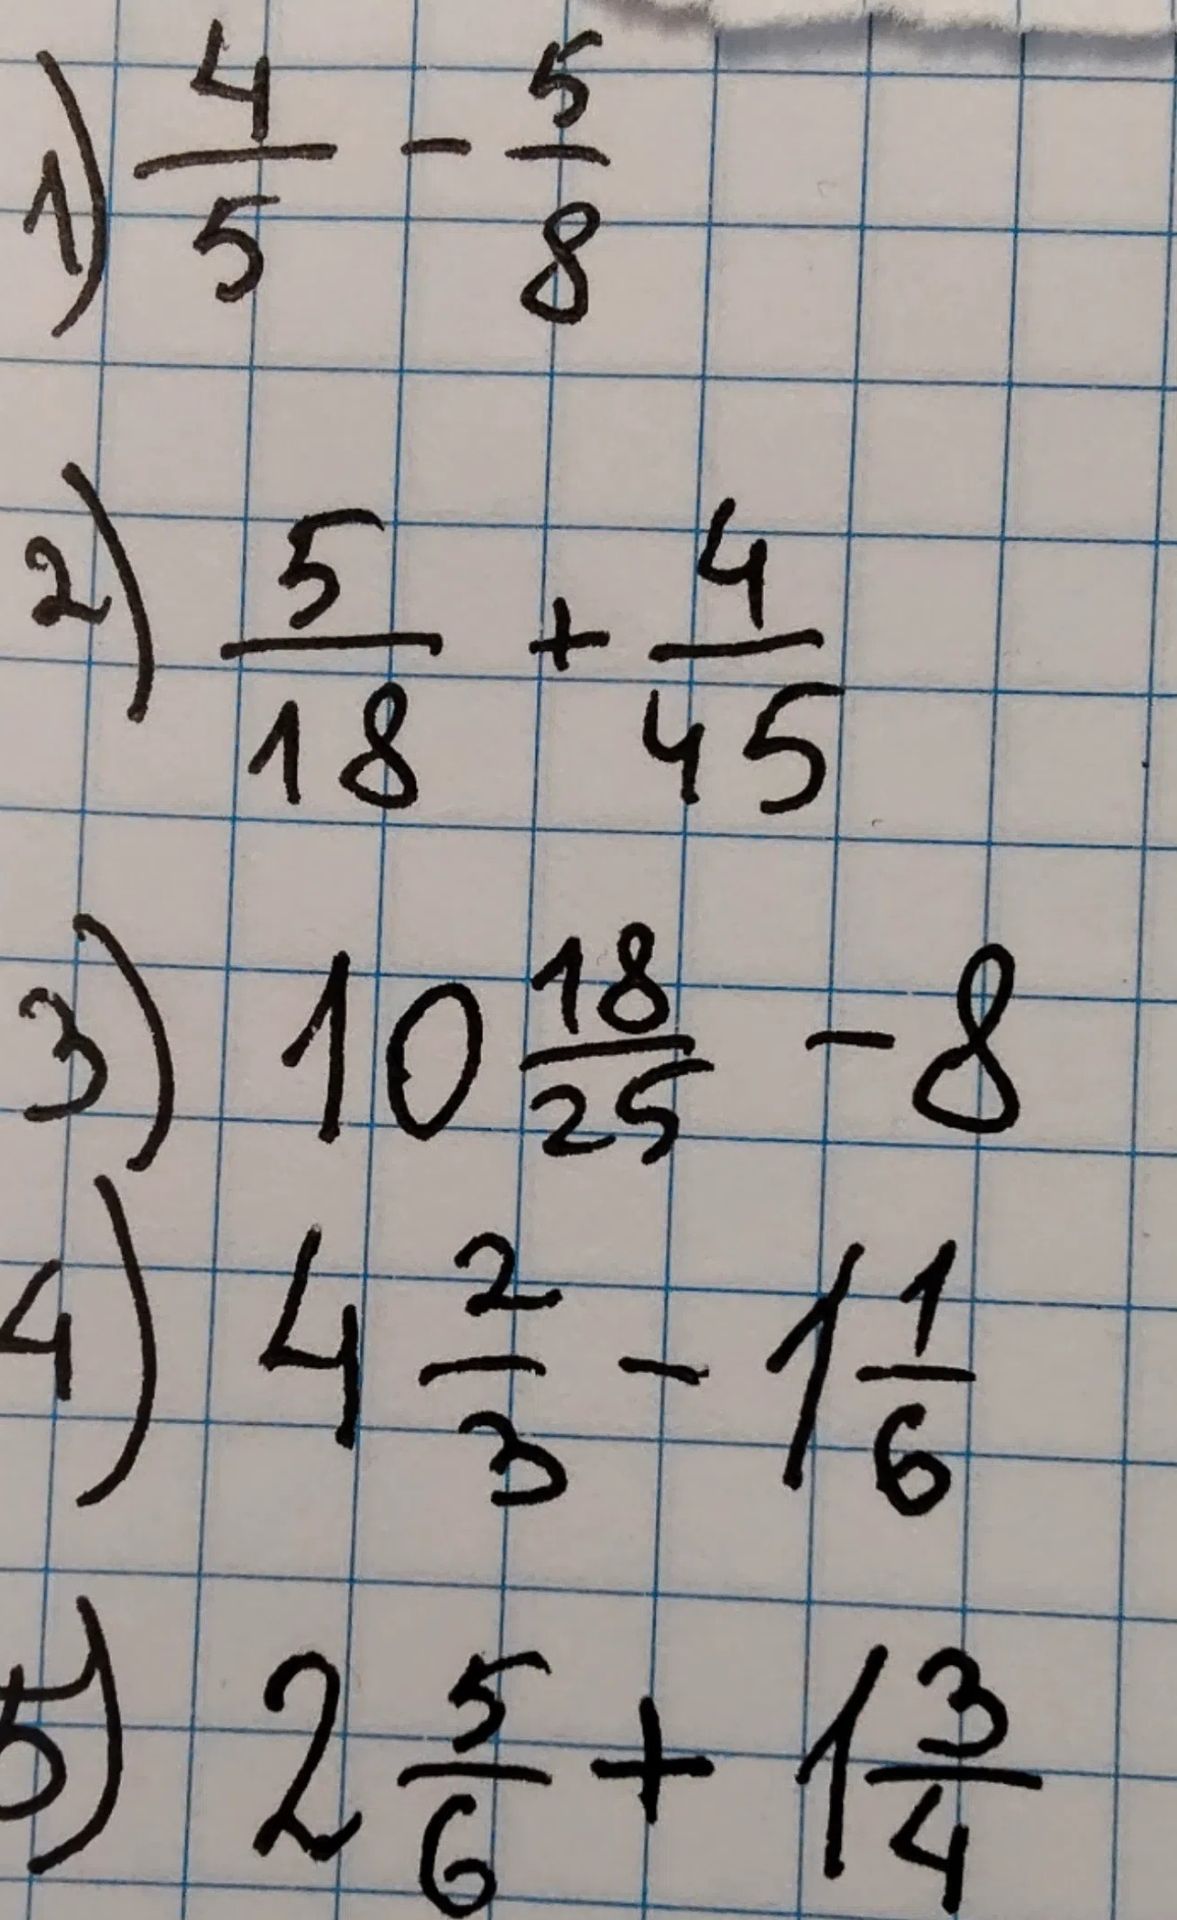 1) 4/5 - 5/8
2) 5/18 + 4/45
3) 10 18/25 - 8
4) 4 2/3 - 1 1/6
5) 2 5/6 + 1 3/4